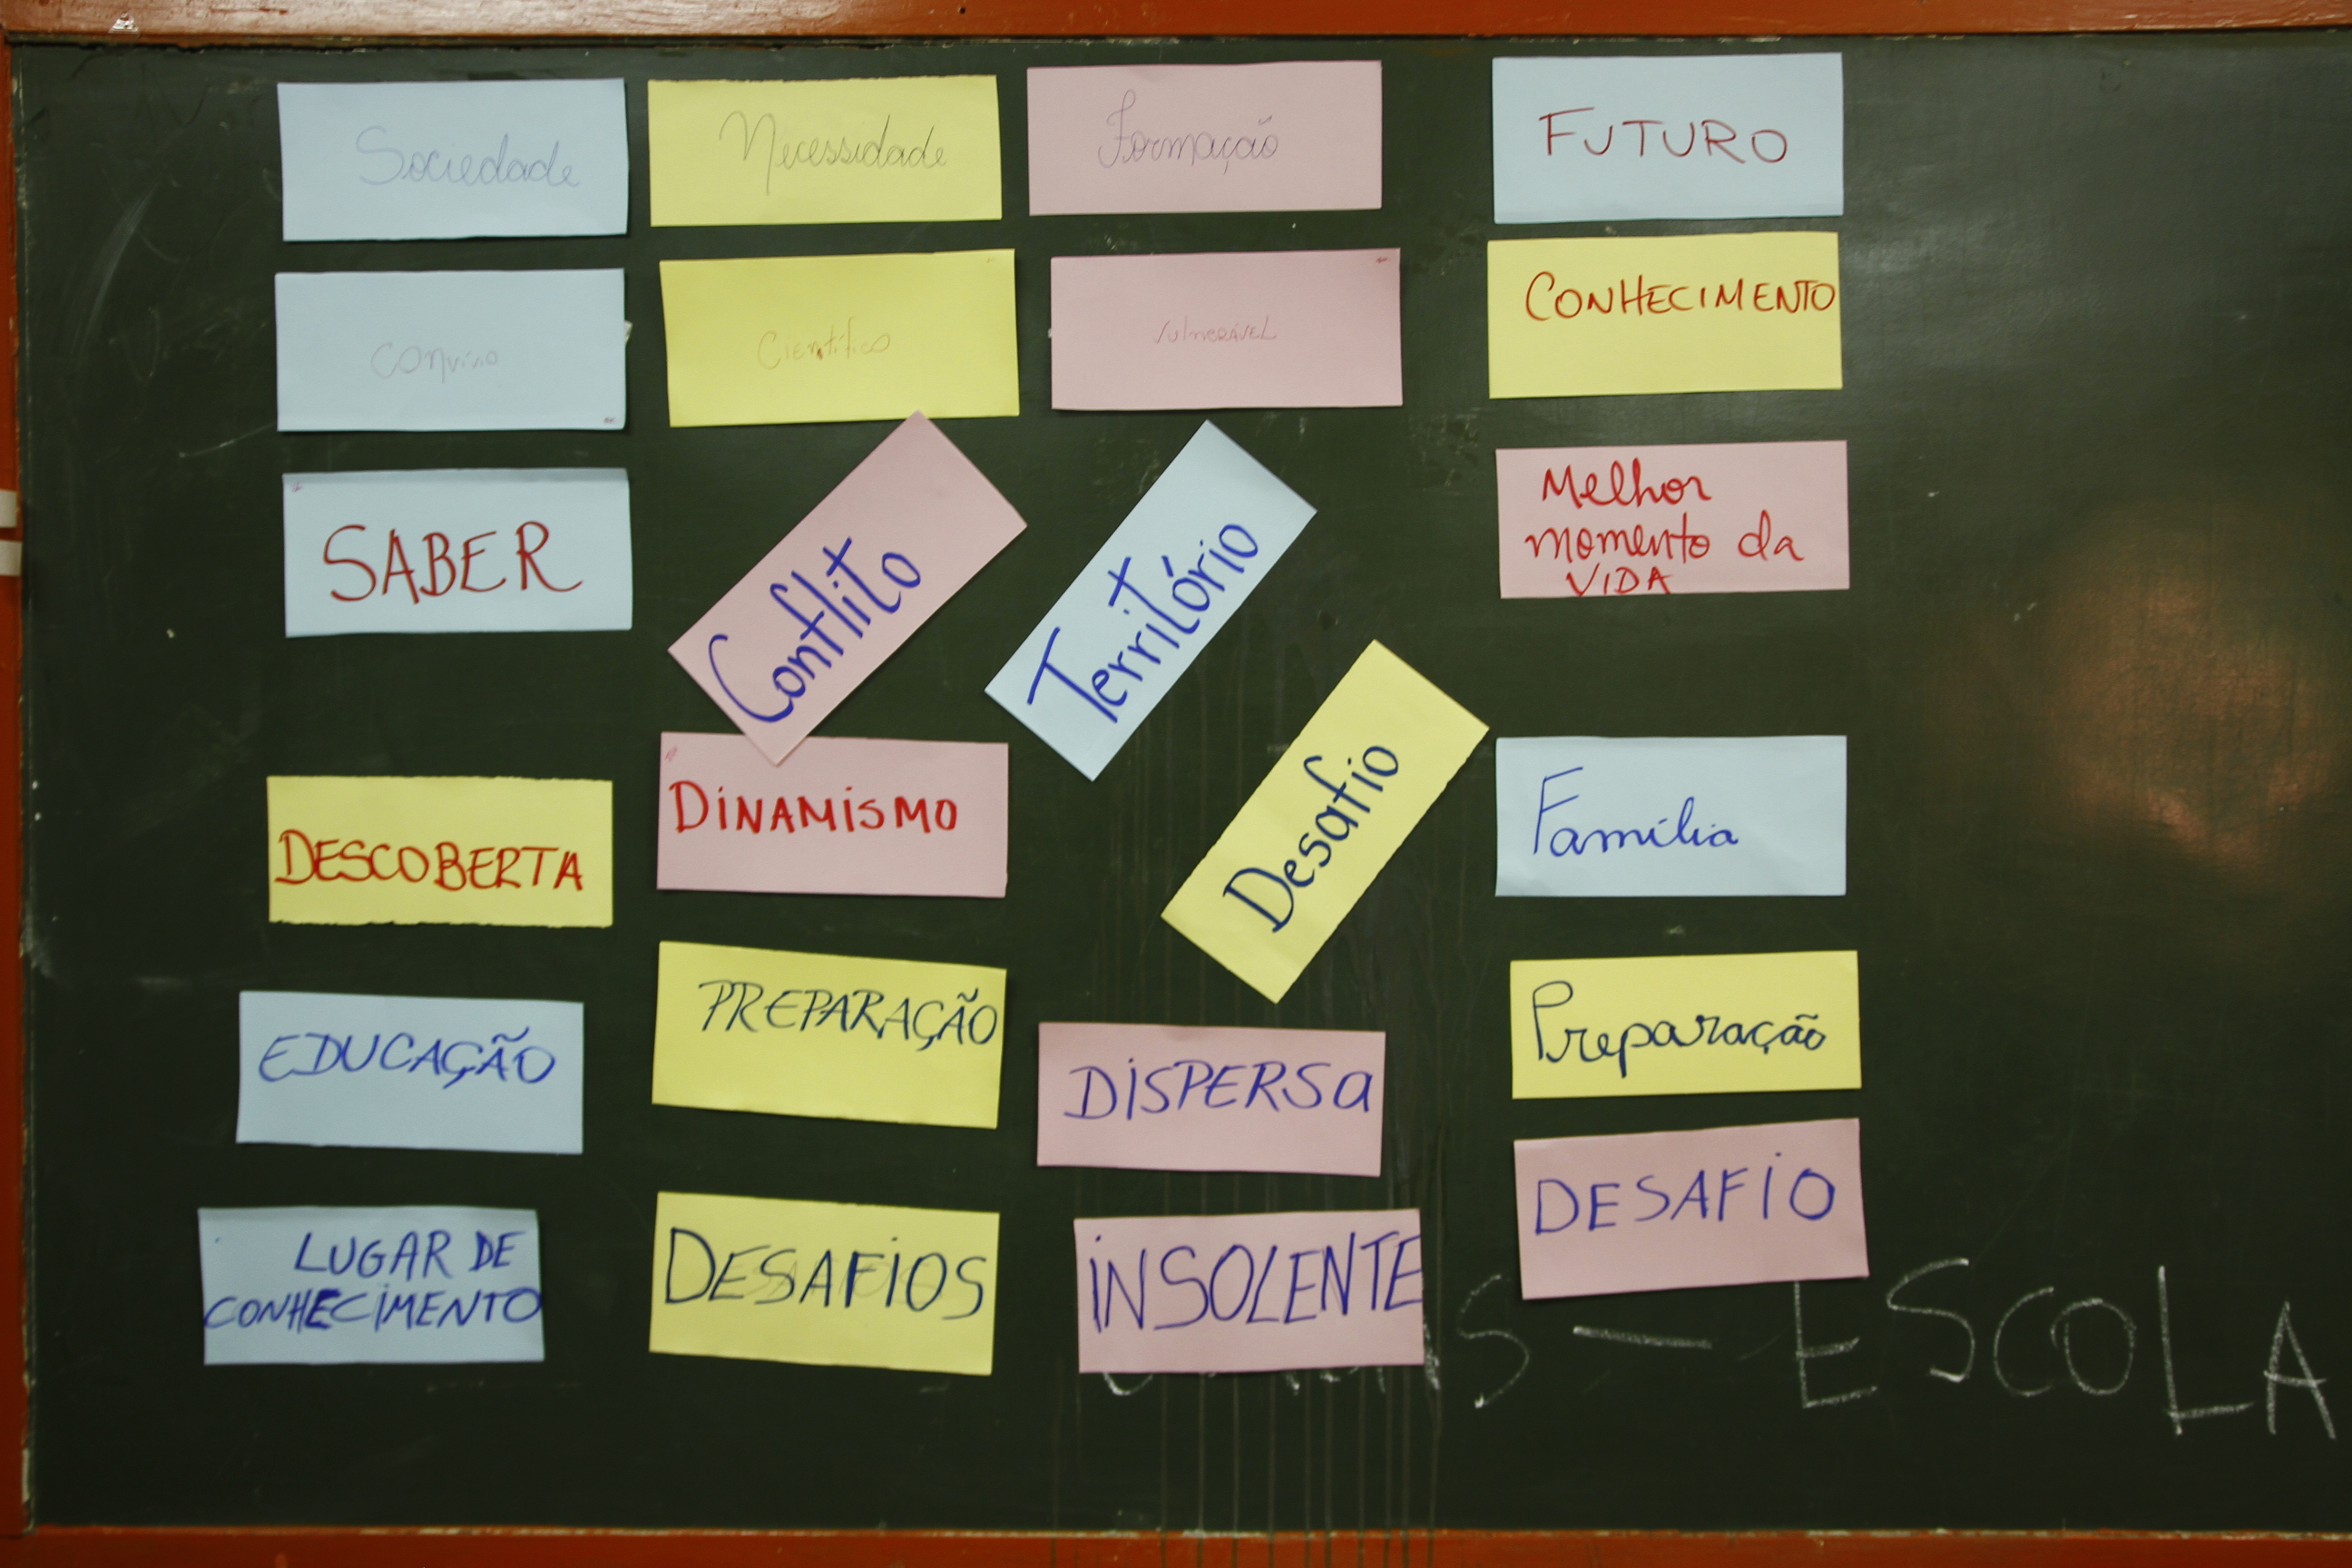 Sociedade
Necessidade
Formação
FUTURO
Convívio
Científico
VulneráveL
CONHECIMENTO
SABER
Conflito
Território
Melhor
momento da
VIDA
DESCOBERTA
DiNAMiSMO
Desafio
Família
EDUCAÇÃO
PREPARAÇÃO
DiSPERSa
Preparação
LUGAR DE
CONHECiMENTO
DESAFiOS
iNSOLENTE
DESAFiO
S — ESCOLA